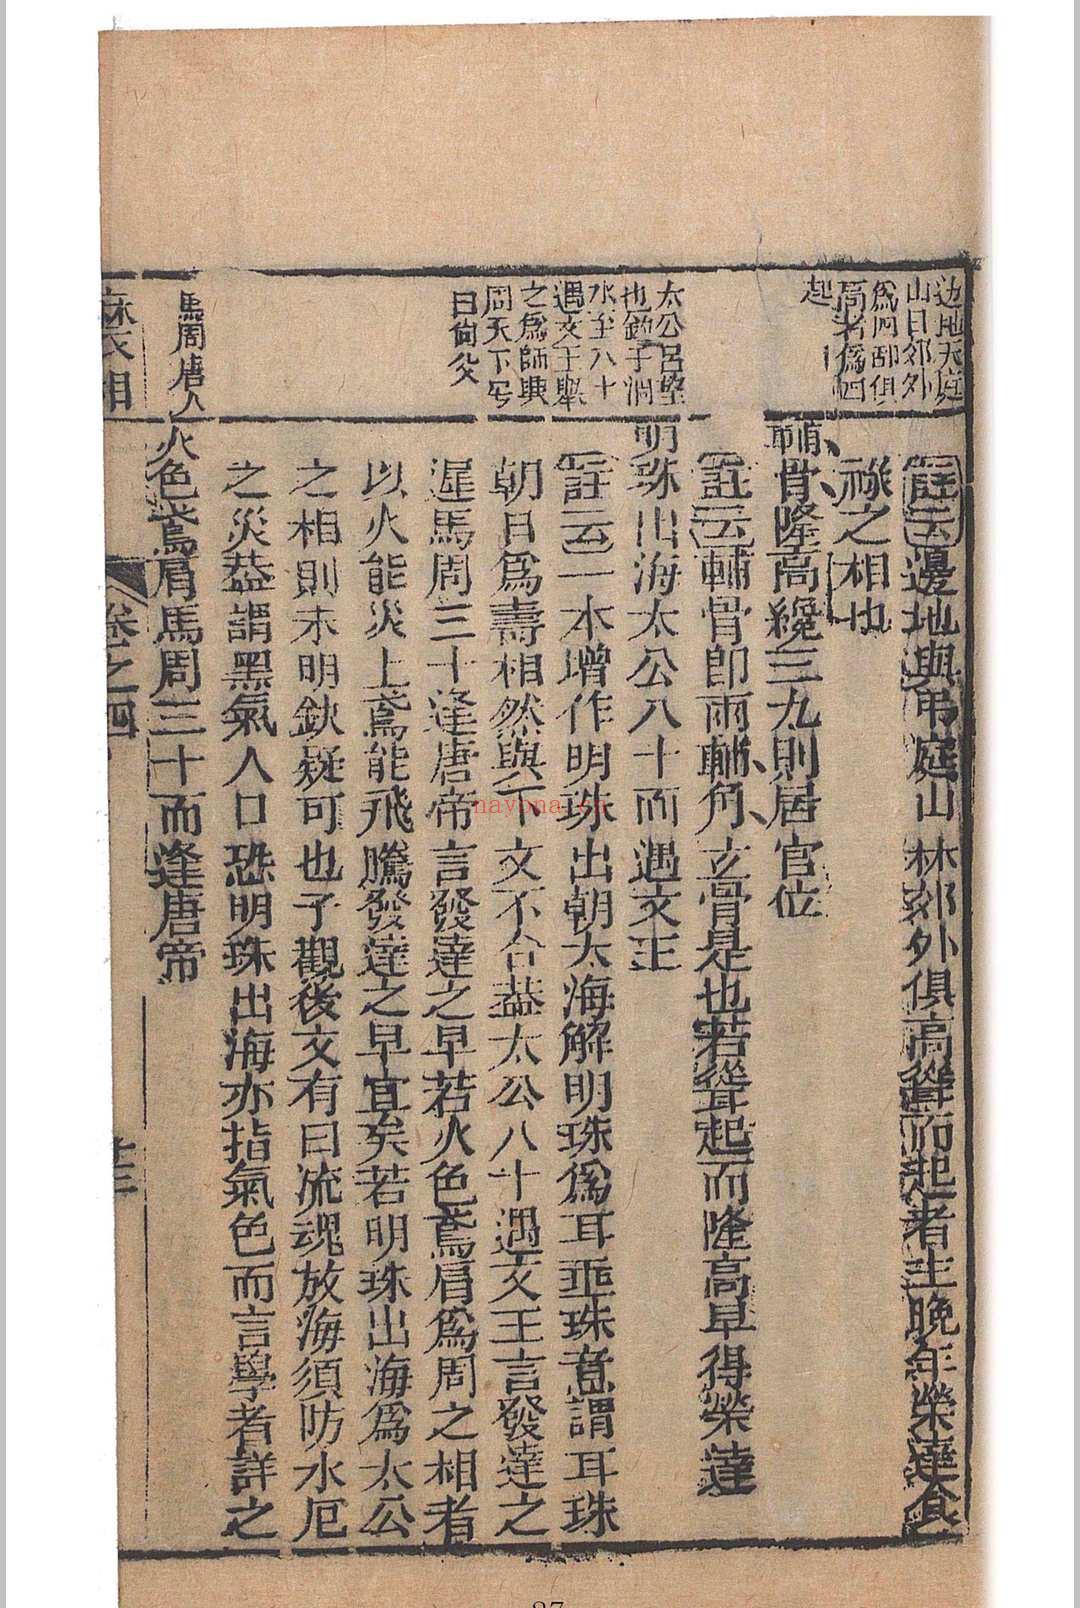 边地天庭
山日郊外
爲四部俱
高者爲四
起
太公吕望
也釣于渭
水年八十
遇文王舉
之爲師興
周天下号
曰尙父
馬周唐人
註云邊地與吊庭山林郊外俱高聳而起者主晚年榮達食
祿之相也
輔骨隆高纔三九則居官位
註云輔骨卽兩輔角玄骨是也若聳起而隆高早得榮達
明珠出海太公八十而遇文王
註云一本增作明珠出朝太海解明珠爲耳垂珠意謂耳珠
朝日爲壽相然與下文不合葢太公八十遇文王言發達之
遲馬周三十逢唐帝言發達之早若火色鳶肩爲周之相者
以火能炎上鳶能飛騰發達之早宜矣若明珠出海爲太公
之相則未明缺疑可也予觀後文有曰流魂放海須防水厄
之災葢謂黑氣人口恐明珠出海亦指氣色而言學者詳之
火色鳶肩馬周三十而逢唐帝
麻衣相
卷之四
十三
nayona.cn
27